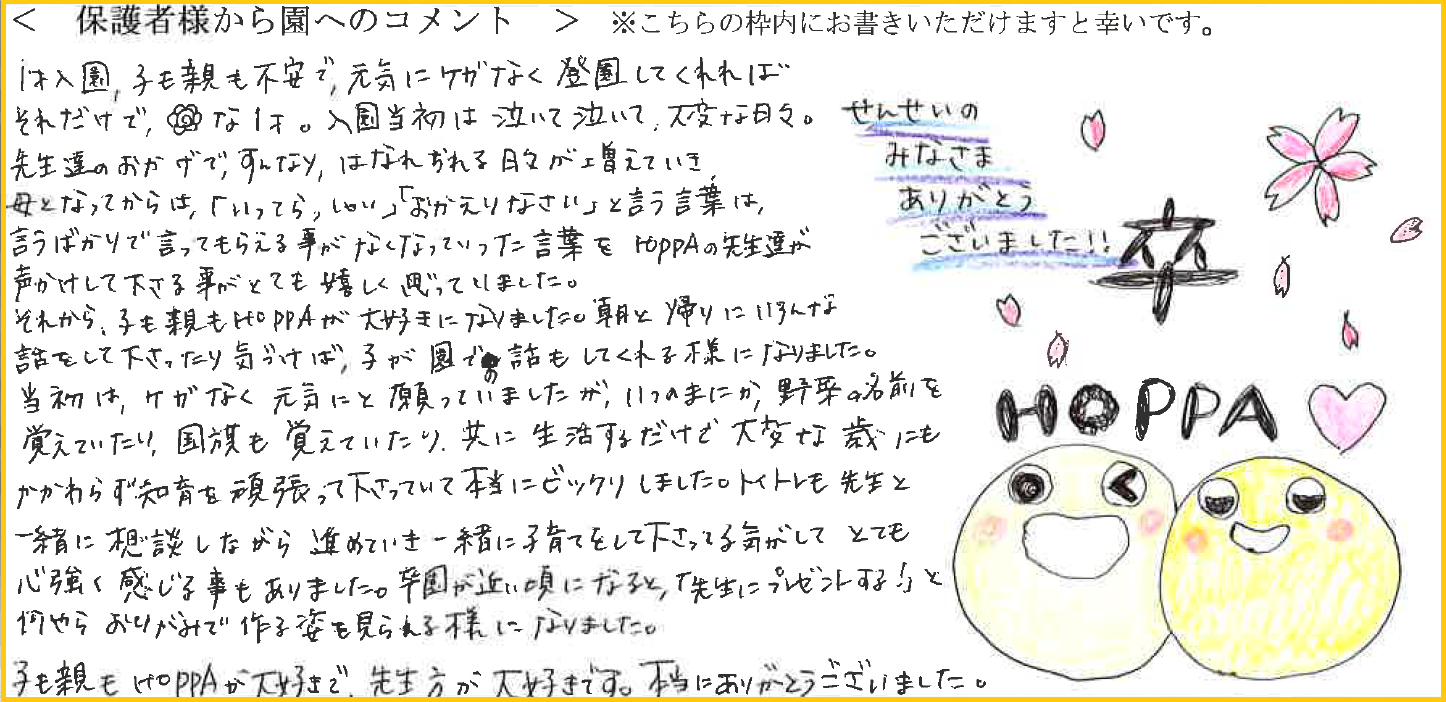 ＜　保護者様から園へのコメント　＞　※こちらの枠内にお書きいただけますと幸いです。
1才入園,子も親も不安で,元気にケガなく登園してくれれば
それだけで,な1才。入園当初は泣いて泣いて,大変な日々。
先生達のおかげで,すんなり,はなれられる日々が増えていき
母となってからは,「いってらっしゃい」「おかえりなさい」と言う言葉は,
言うばかりで言ってもらえる事がなくなっていった言葉をHOPPAの先生達が
声かけして下さる事がとても嬉しく思っていました。
それから,子も親もHOPPAが大好きになりました。朝と帰りにいろんな
話をして下さったり気づけば,子が園での話もしてくれる様になりました。
当初は,ケガなく元気にと願っていましたが,いつのまにか,野菜の名前を
覚えていたり,国旗も覚えていたり,共に生活するだけで大変な歳にも
かかわらず知育を頑張って下さっていて本当にビックリしました。トイトレも先生と
一緒に想談しながら進めていき一緒に子育てをして下さってる気がしてとても
心強く感じる事もありました。卒園が近い頃になると,「先生にプレゼントする!」と
何やらおりがみで作る姿も見られる様になりました。
子も親もHOPPAが大好きで,先生方が大好きです。本当にありがとうございました。
せんせいの
みなさま
ありがとう
ございました!!
卒
HOPPA